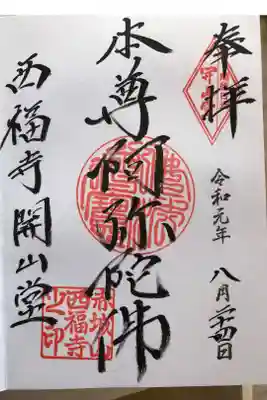 奉拝
令和元年
八月二十四日
本尊阿弥陀佛
西福寺開山堂
赤城山
西福寺
之印